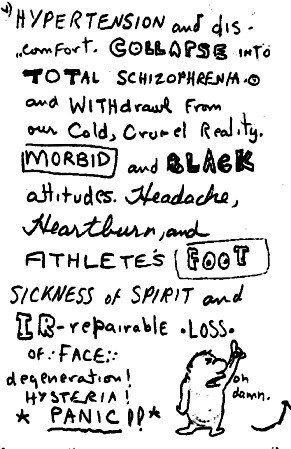 HYPERTENSION and dis-
comfort. COLLAPSE INTO
TOTAL SCHIZOPHRENIA.
and WITHdrawl From
our Cold, Cruel Reality.
MORBID and BLACK
attitudes. Headache,
Heartburn, and
ATHLETE'S FOOT
SICKNESS of SPIRIT and
IR-repairable .LOSS.
OF .: FACE::
degeneration!
HYSTERIA!
* PANIC!! *
oh
damn.